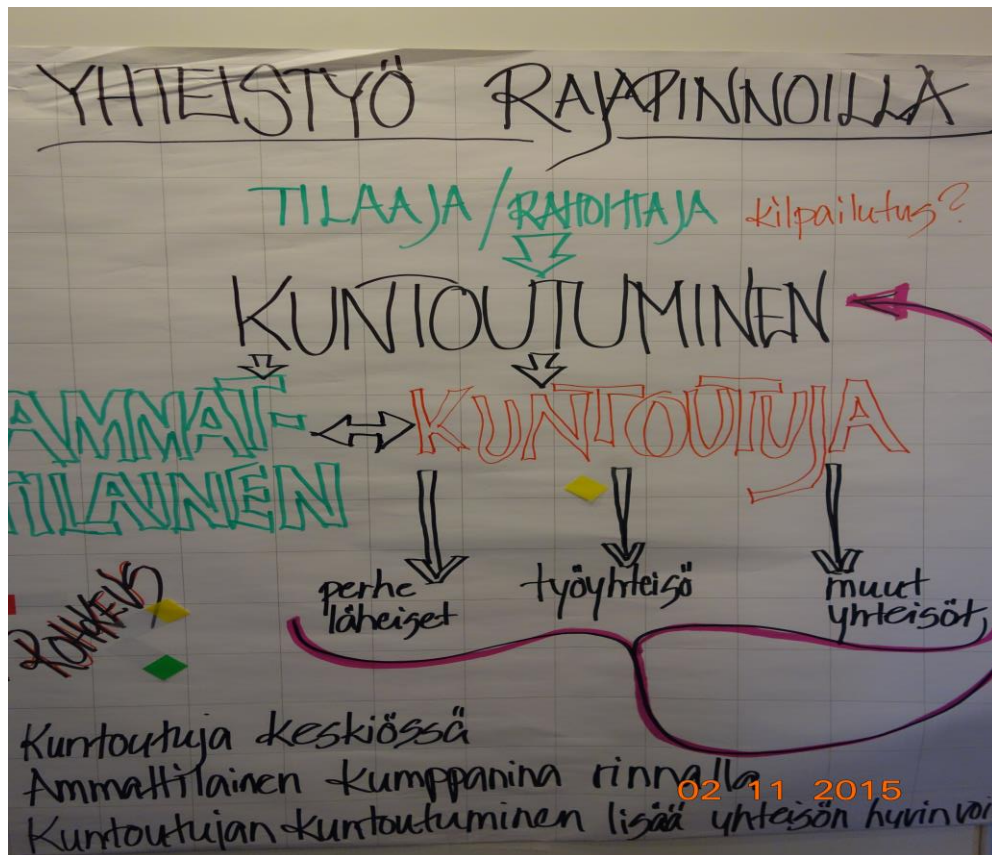 YHTEISTYÖ RAJAPINNOILLA
TILAAJA/RAHOITTAJA kilpailutus?
KUNTOUTUMINEN
AMMAT-
TILAINEN
KUNTOUTUJA
perhe
läheiset
työyhteisö
muut
yhteisöt,
ROHKEUS
Kuntoutuja keskiössä
Ammattilainen kumppanina rinnalla
02 11 2015
Kuntoutujan kuntoutuminen lisää yhteisön hyvinvoi